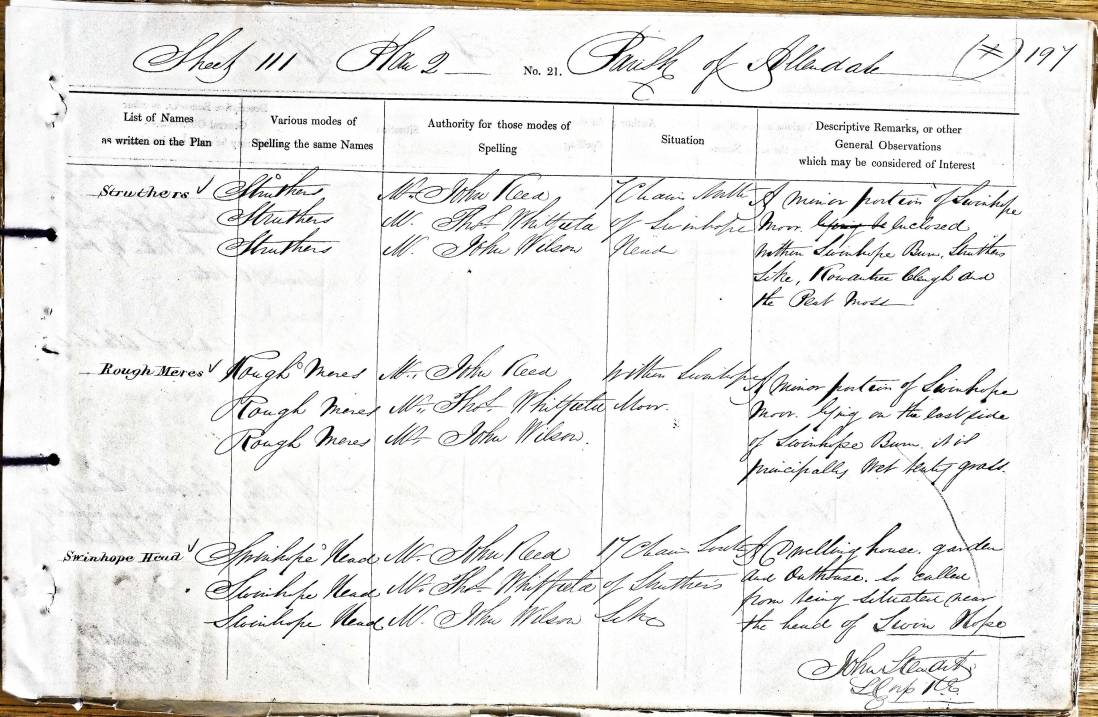 Sheet 111 Plan 2 No. 21. Parish of Allendale (#) 197
List of Names
as written on the Plan
Various modes of
Spelling the same Names
Authority for those modes of
Spelling
Situation
Descriptive Remarks, or other
General Observations
which may be considered of Interest
Struthers
Struthers
Struthers
Struthers
Mr. John Reed
Mr. Thos. Whitfield
Mr. John Wilson
7 Chains North
of Swinhope
Head
A minor portion of Swinhope
Moor lying be Enclosed
within Swinhope Burn, Struthers
Sike, Rowantree Cleugh and
the Peat Moss
Rough Meres
Rough Meres
Rough Meres
Rough Meres
Mr. John Reed
Mr. Thos. Whitfield
Mr. John Wilson.
within Swinhope
Moor.
A minor portion of Swinhope
Moor. lying on the East side
of Swinhope Burn, it is
principally Wet benty grass.
Swinhope Head
Swinhope Head
Swinhope Head
Swinhope Head
Mr. John Reed
Mr. Thos. Whitfield
Mr. John Wilson
17 Chains South
of Struthers
Sike
A Dwelling house. garden
and Outhouse. so called
from being situated near
the head of Swin Hope
John Stewart
L Corp RE